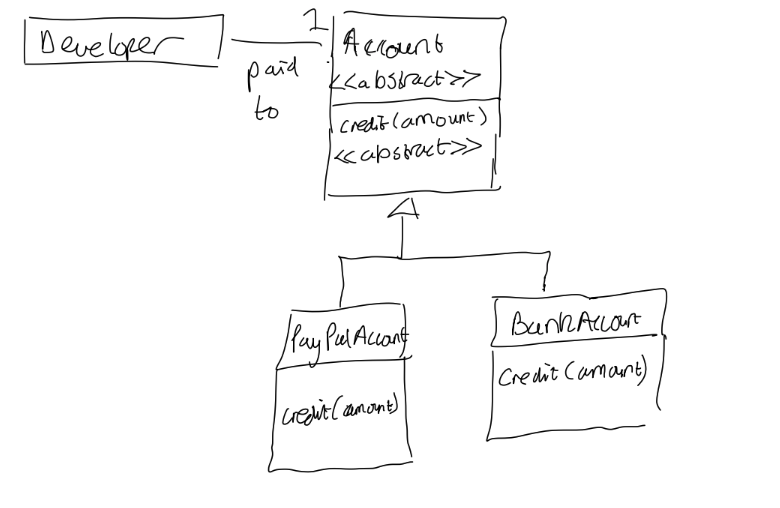 Developer
1
paid
to
Account
<<abstract>>
credit(amount)
<<abstract>>
PayPalAccount
credit(amount)
BankAccount
credit(amount)